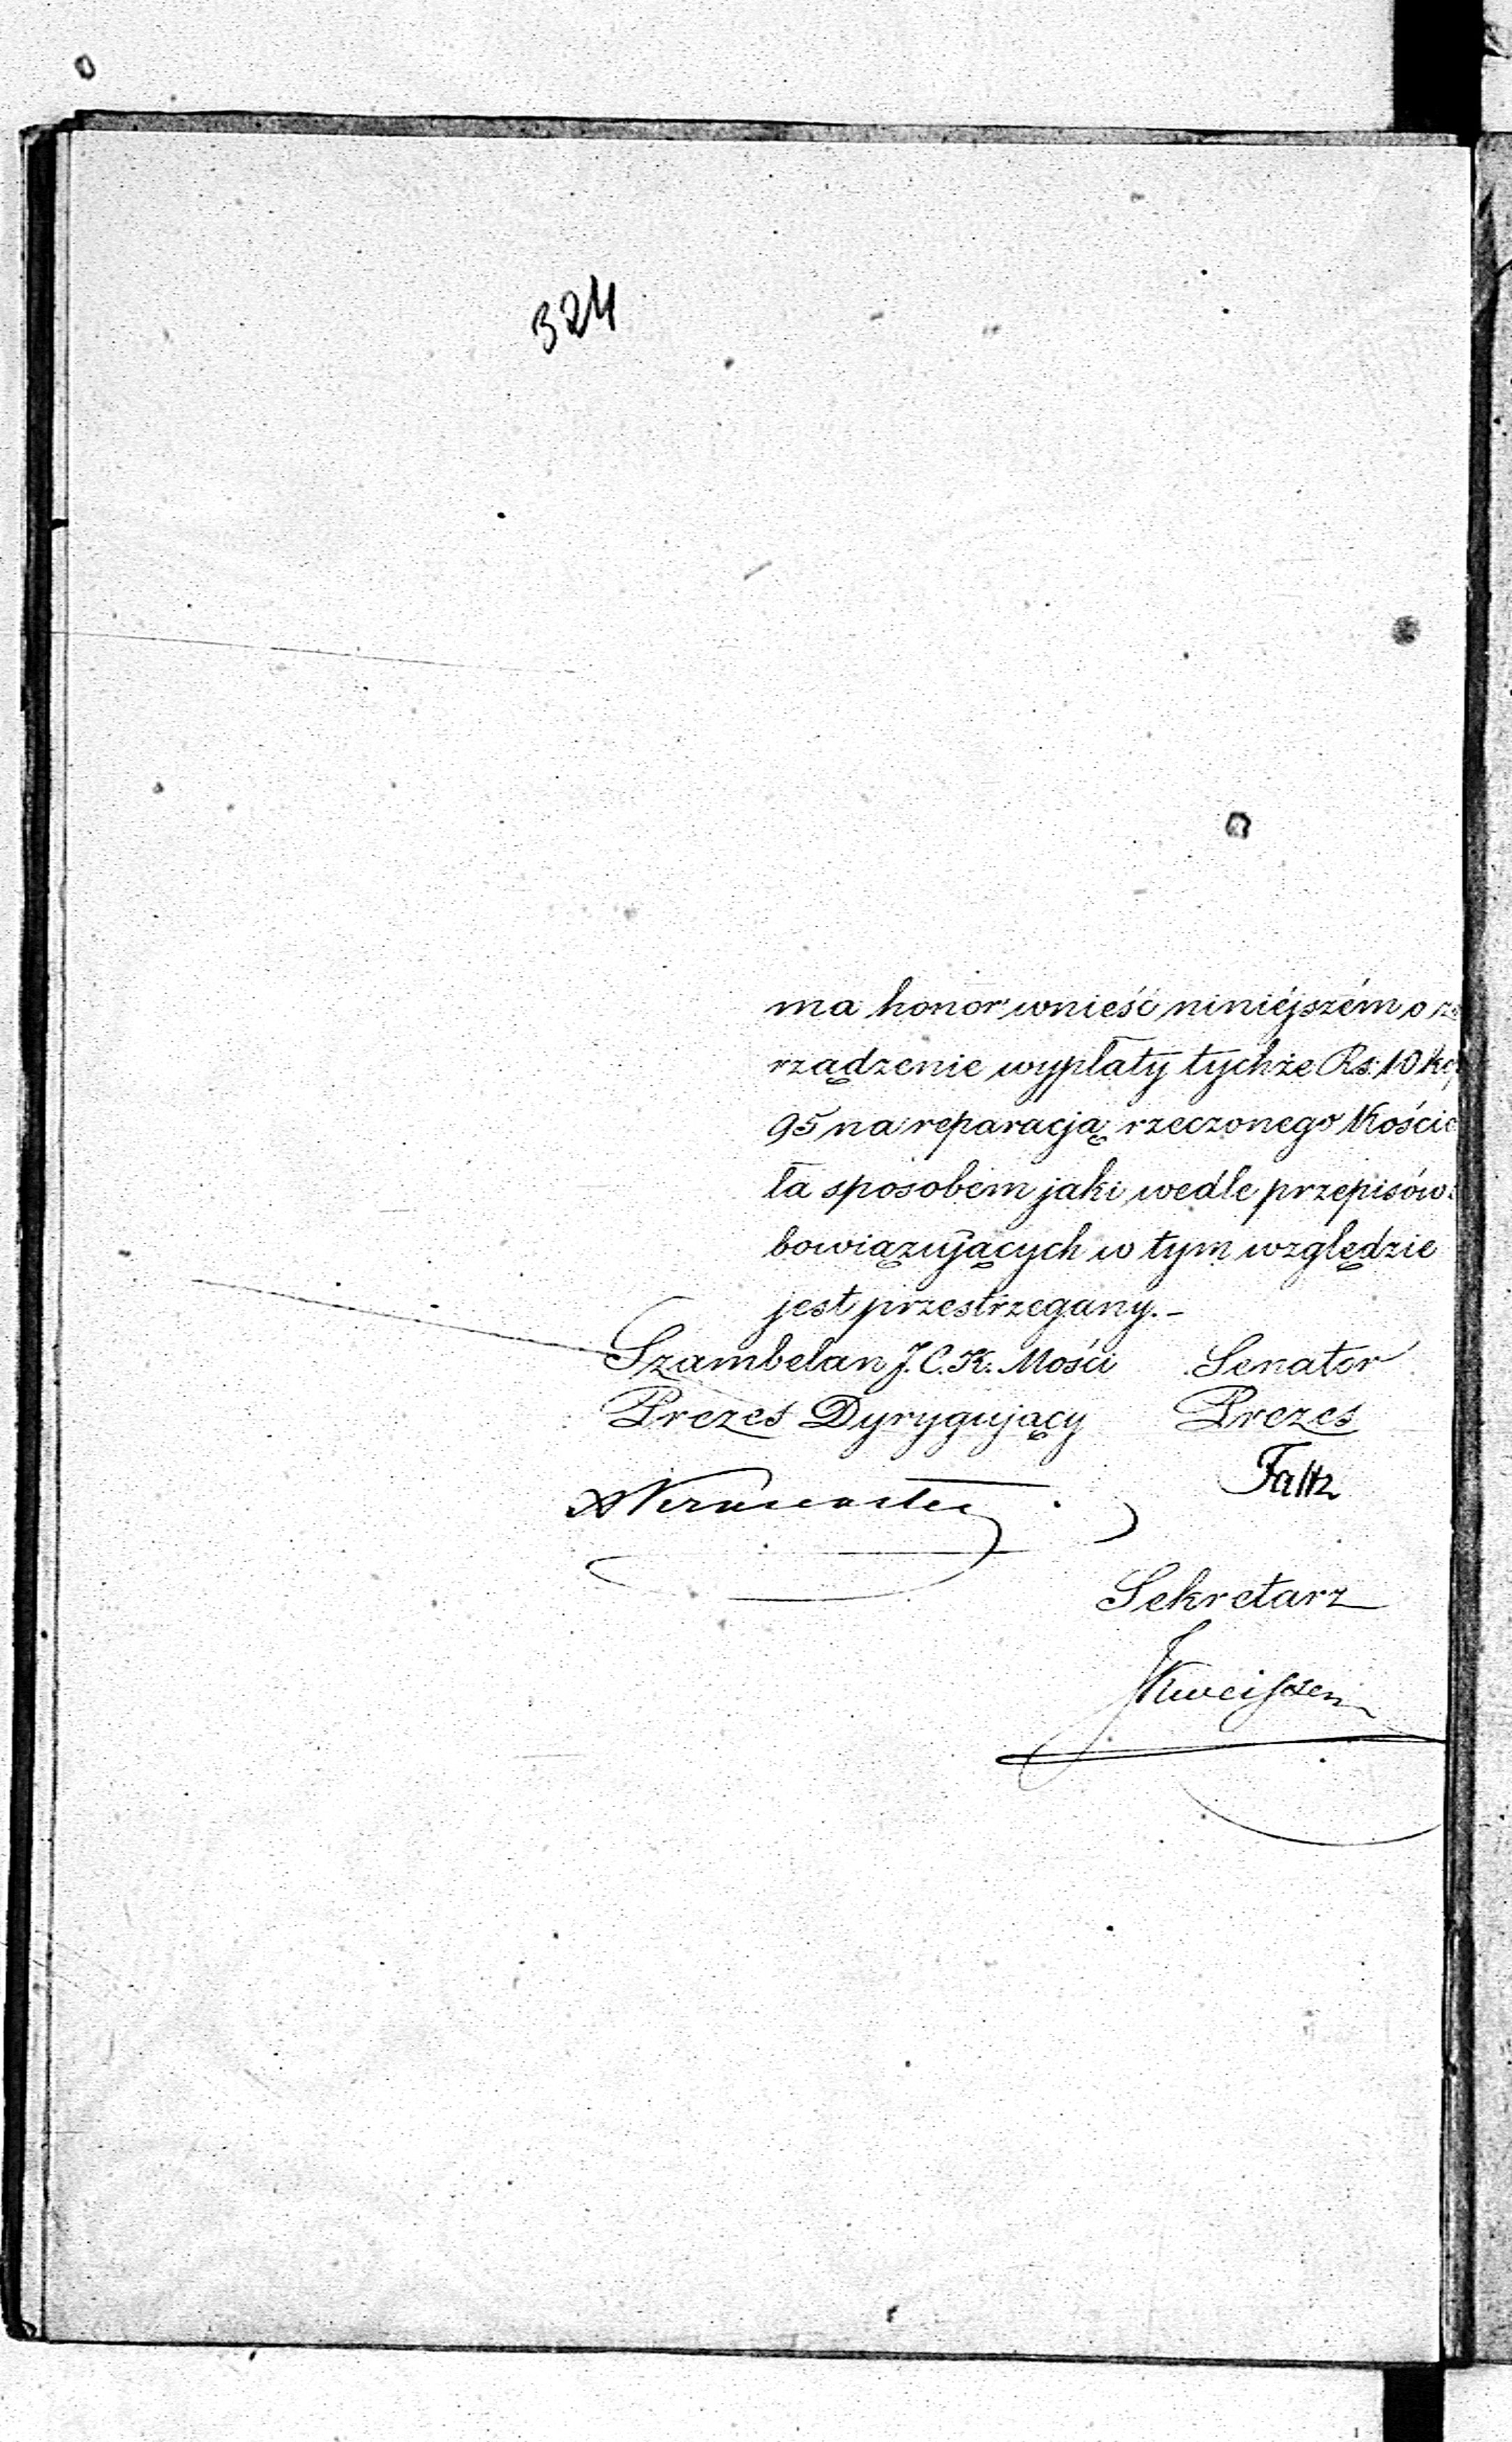 324
ma honor wnieść niniéjszém o za
rządzenie wypłaty tychże Rs. 10 kop
95 na reparacją rzeczonego Kościo
ła sposobem jaki wedle przepisów o
bowiązujących w tym względzie
jest przestrzegany.-
Szambelan J.C.K. Mości Senator
Prezes Dyrygujący Prezes
Faltz
Sekretarz